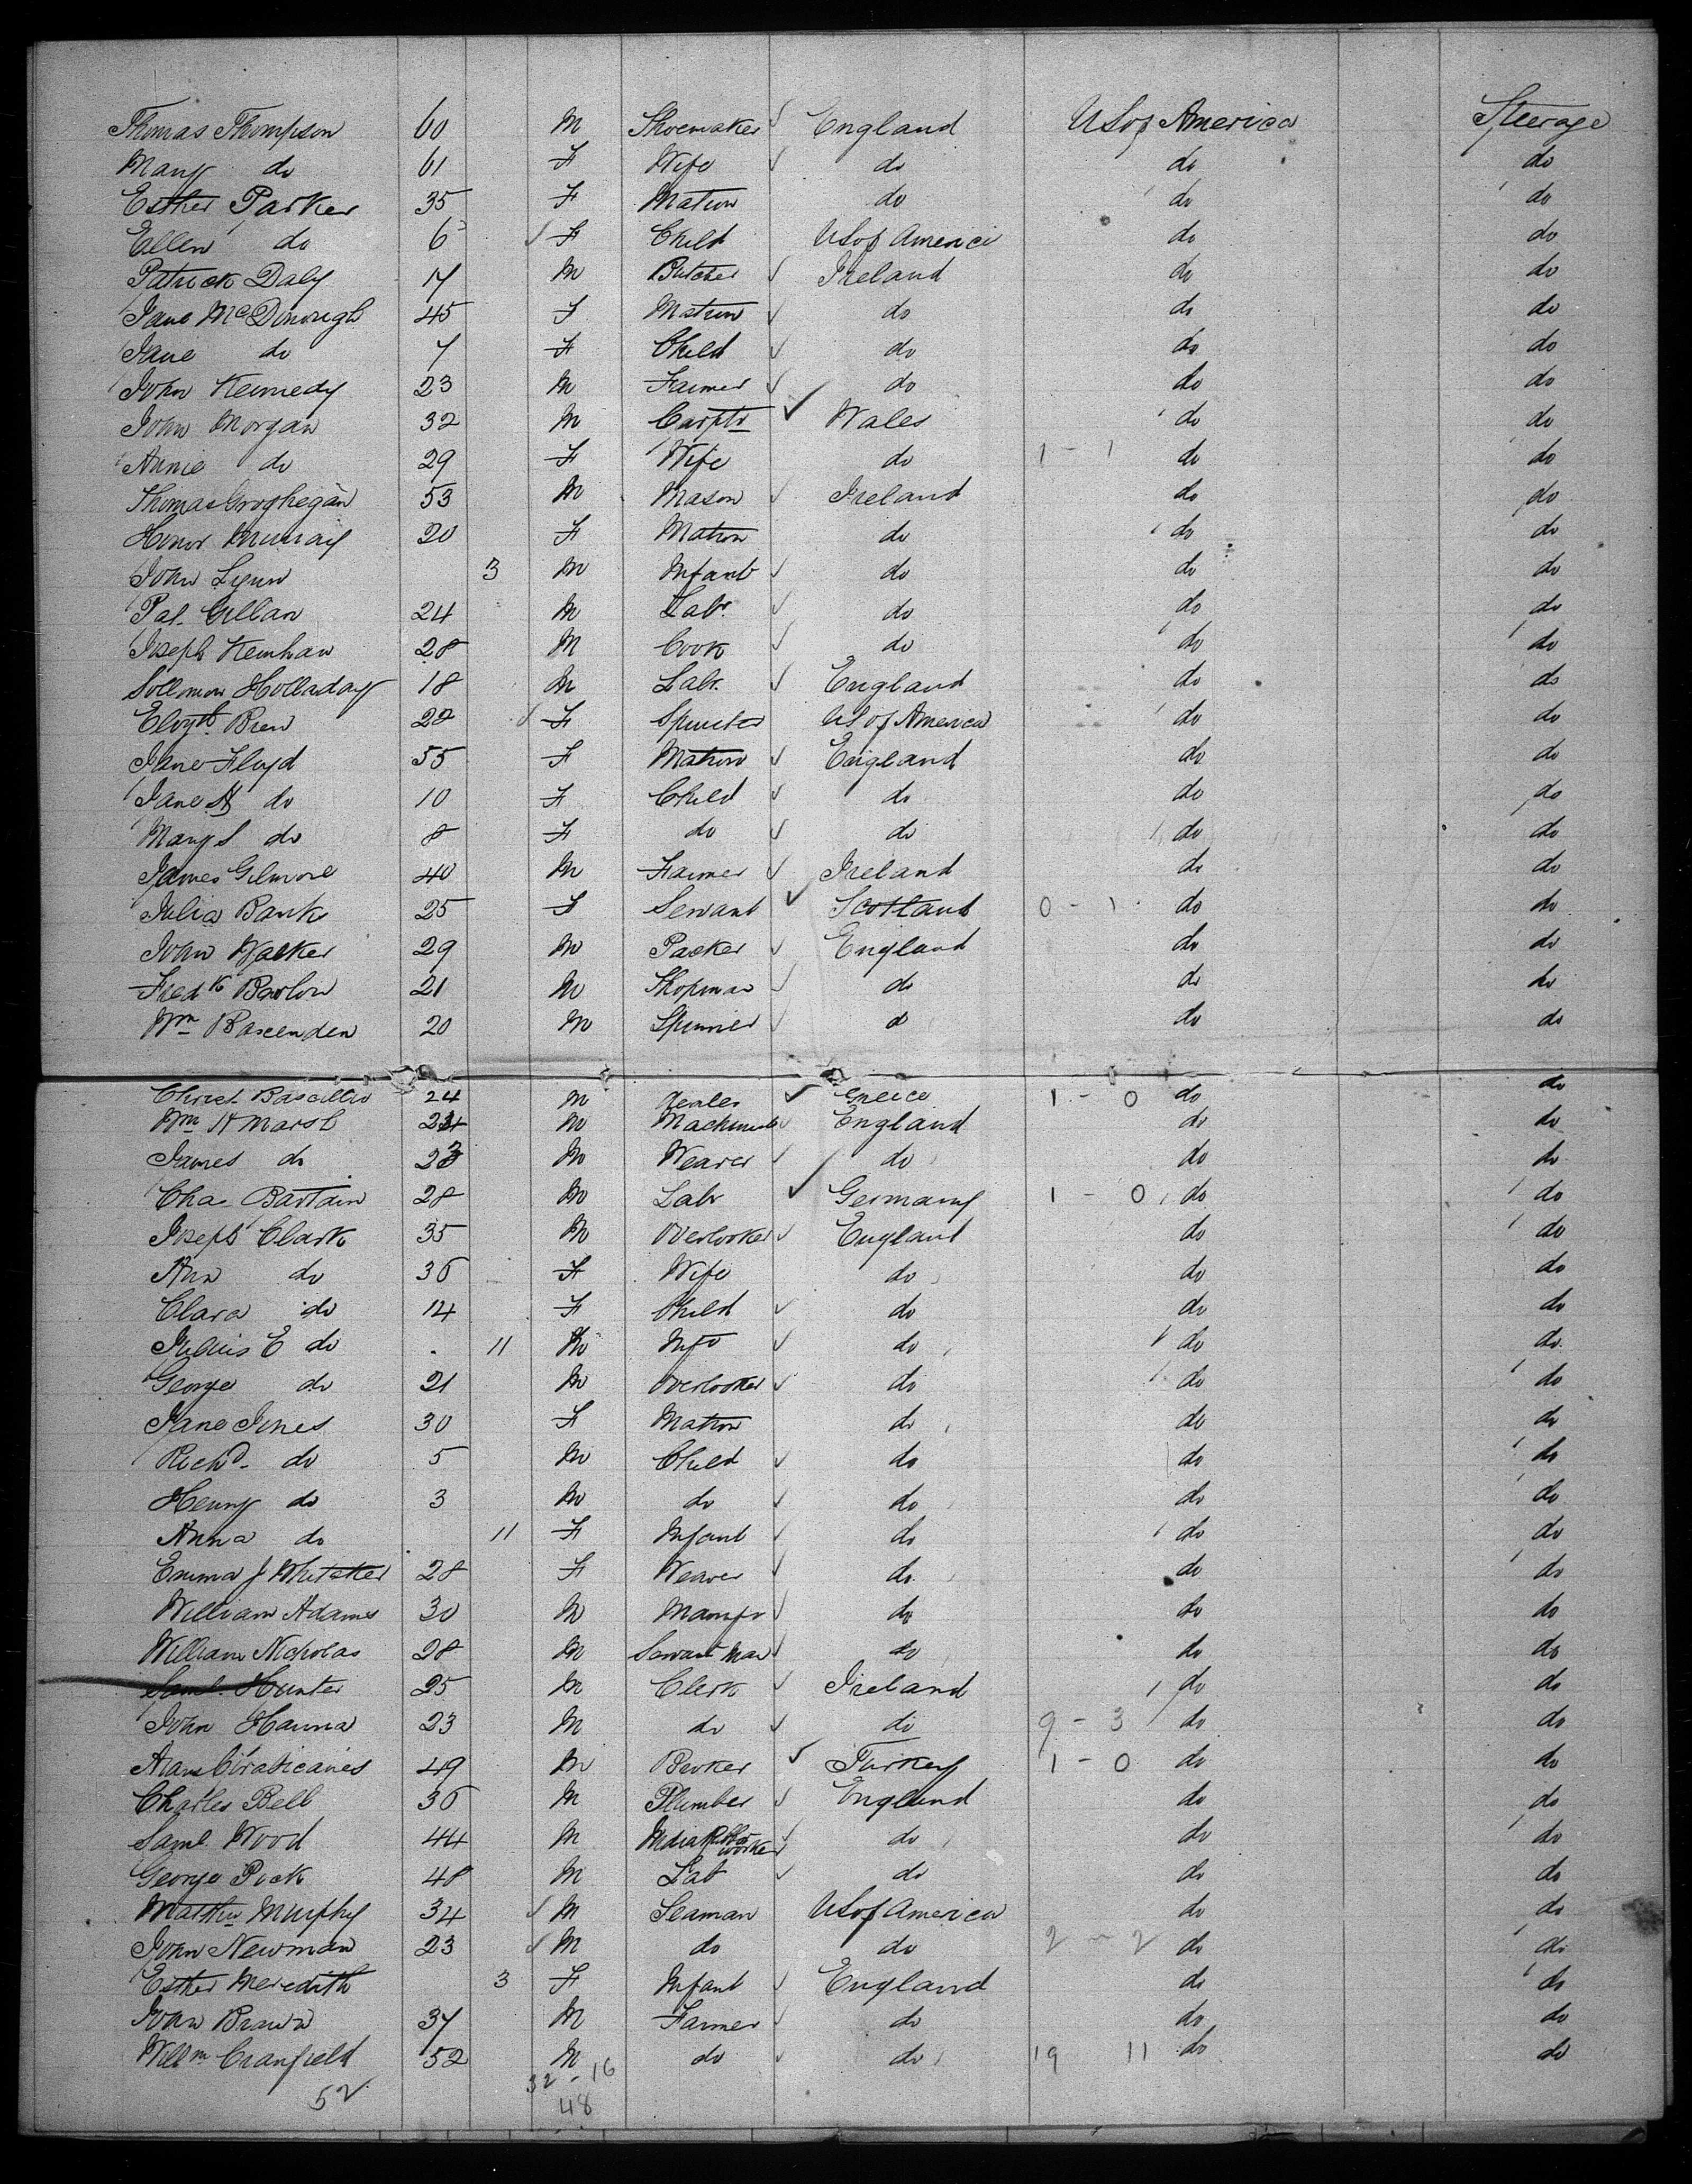 Thomas Thompson 60 M Shoemaker England US of America Steerage
Mary do 61 F Wife do do do
Esther Parker 35 F Matron do do do
Ellen do 6 F Child US of America do do
Patrick Daly 17 M Butcher Ireland do do
Jane McDonough 45 F Matron do do do
Jane do 7 F Child do do do
John Kennedy 23 M Farmer do do do
John Morgan 32 M Carptr Wales do do
Annie do 29 F Wife do 1 - 1 do do
Thomas Groghegan 53 M Mason Ireland do do
Honor Murray 20 F Matron do do do
John Lynn 3 M Infant do do do
Pat. Gillan 24 M Labr. do do do
Joseph 28 M Cook do do do
Sollomon Holladay 18 M Labr. England do do
Elizth. Brew 22 F Spinster US of America do do
Jane Floyd 55 F Matron England do do
Jane A do 10 F Child do do do
Mary S do 8 F do do do do
James Gilmore 40 M Farmer Ireland do do
Julia Banks 25 F Servant Scotland 0 - 1 do do
John Walker 29 M Packer England do do
Fredk Barlow 21 M Shopman do do do
Wm 20 M Spinner do do do
Christ. 24 M Dealer Greece 1 - 0 do do
Wm H Marsh 24 M Machinist England do do
James do 23 M Weaver do do do
Chas Bartain 28 M Labr Germany 1 - 0 do do
Joseph Clark 35 M Overlooker England do do
Ann do 36 F Wife do do do
Clara do 14 F Child do do do
Julius E do 11 M Inft do do do
George do 21 M Overlooker do do do
Jane Jones 30 F Matron do do do
Richd. do 5 M Child do do do
Henry do 3 M do do do do
Anna do 11 F Infant do do do
Emma J Whitaker 28 F Weaver do do do
William Adams 30 M do do do
William Nicholas 28 M Servant Man do do do
Saml. Hunter 25 M Clerk Ireland do do
John Hanna 23 M do do 9 - 3 do do
49 M Broker Turkey 1 - 0 do do
Charles Bell 36 M Plumber England do do
Saml. Wood 44 M India Rubber Worker do do do
George Pock 48 M Lab do do do
Matthw Murphy 34 M Seaman US of America do do
John Newman 23 M do do 2 - 2 do do
Esther Meredith 3 F Infant England do do
John Brown 37 M Farmer do do do
Willm Cranfield 52 M do do 19 11 do do
52 32 - 16
48